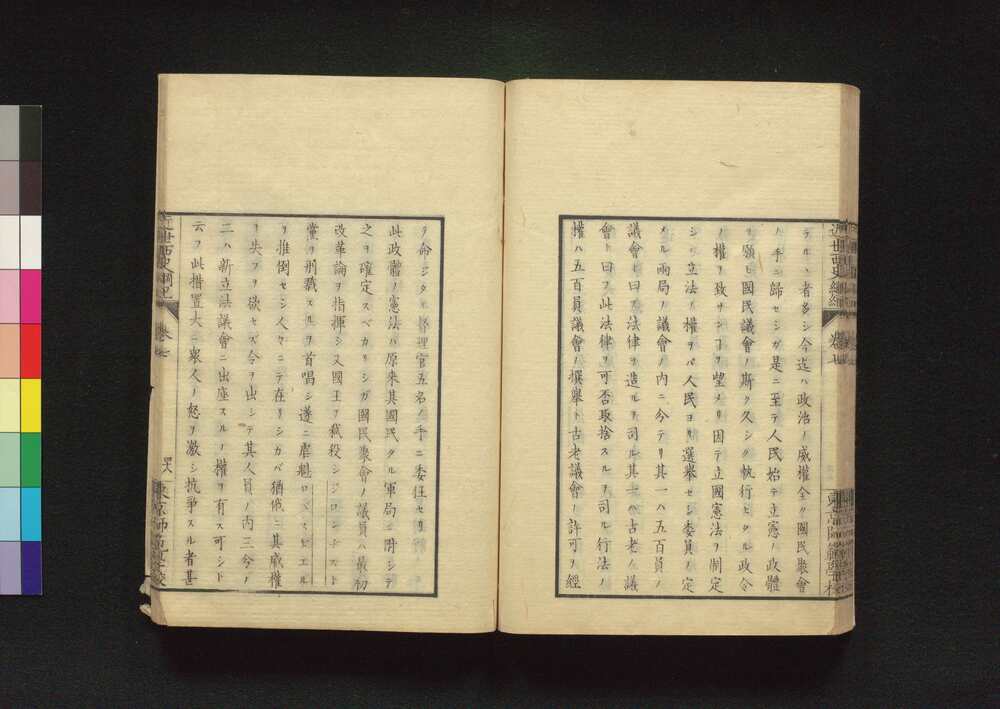 テルヽ者多シ今迄ハ政治ノ威權全ク國民聚會
ノ手ニ歸セシガ是ニ至テ人民始テ立憲ノ政體
ヲ願ヒ國民議會ノ斯ク久シク執行ヒタル政令
ノ權ヲ致サンヿヲ望メリ因テ立國憲法ヲ制定
シ立法ノ權ヲバ人民ヨリ選擧セシ委員ノ定
メル兩局ノ議會ノ內ニ今テリ其一ハ五百員ノ
議會ト曰フ法律ヲ造ルヲ司ル其一ハ古老ノ議
會ト曰フ此法律ヲ可否取捨スルヲ司ル行法ノ
權ハ五百員議會ノ撰擧ト古老議會ノ許可ヲ經
タル命ジタル督理官五名ノ手ニ委任セリ
此政體ノ憲法ハ原來其國民タル軍局ニ附シテ
之ヲ確定スベカリシガ國民聚會ノ議員ハ最初
改革論ヲ指揮シ又國王ヲ弑殺シジロンヂスト
黨ヲ刑戮スルヲ首唱シ遂ニ虐魁ロベスピエル
ヲ推倒セシ人々ニテ在リシカバ猶俄ニ其威權
ヲ失フヲ欲セズ令ヲ出シテ其人員ノ內三分ノ
二ハ新立法議會ニ出座スルノ權ヲ有ス可シト
云フ此措置大ニ衆人ノ怒ヲ激シ抗爭スル者甚
近世西史綱紀
卷七